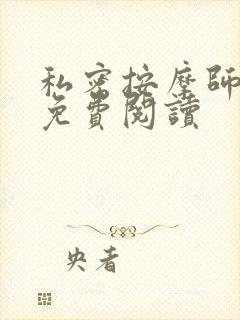 私密按摩師
免費閱讀
央者